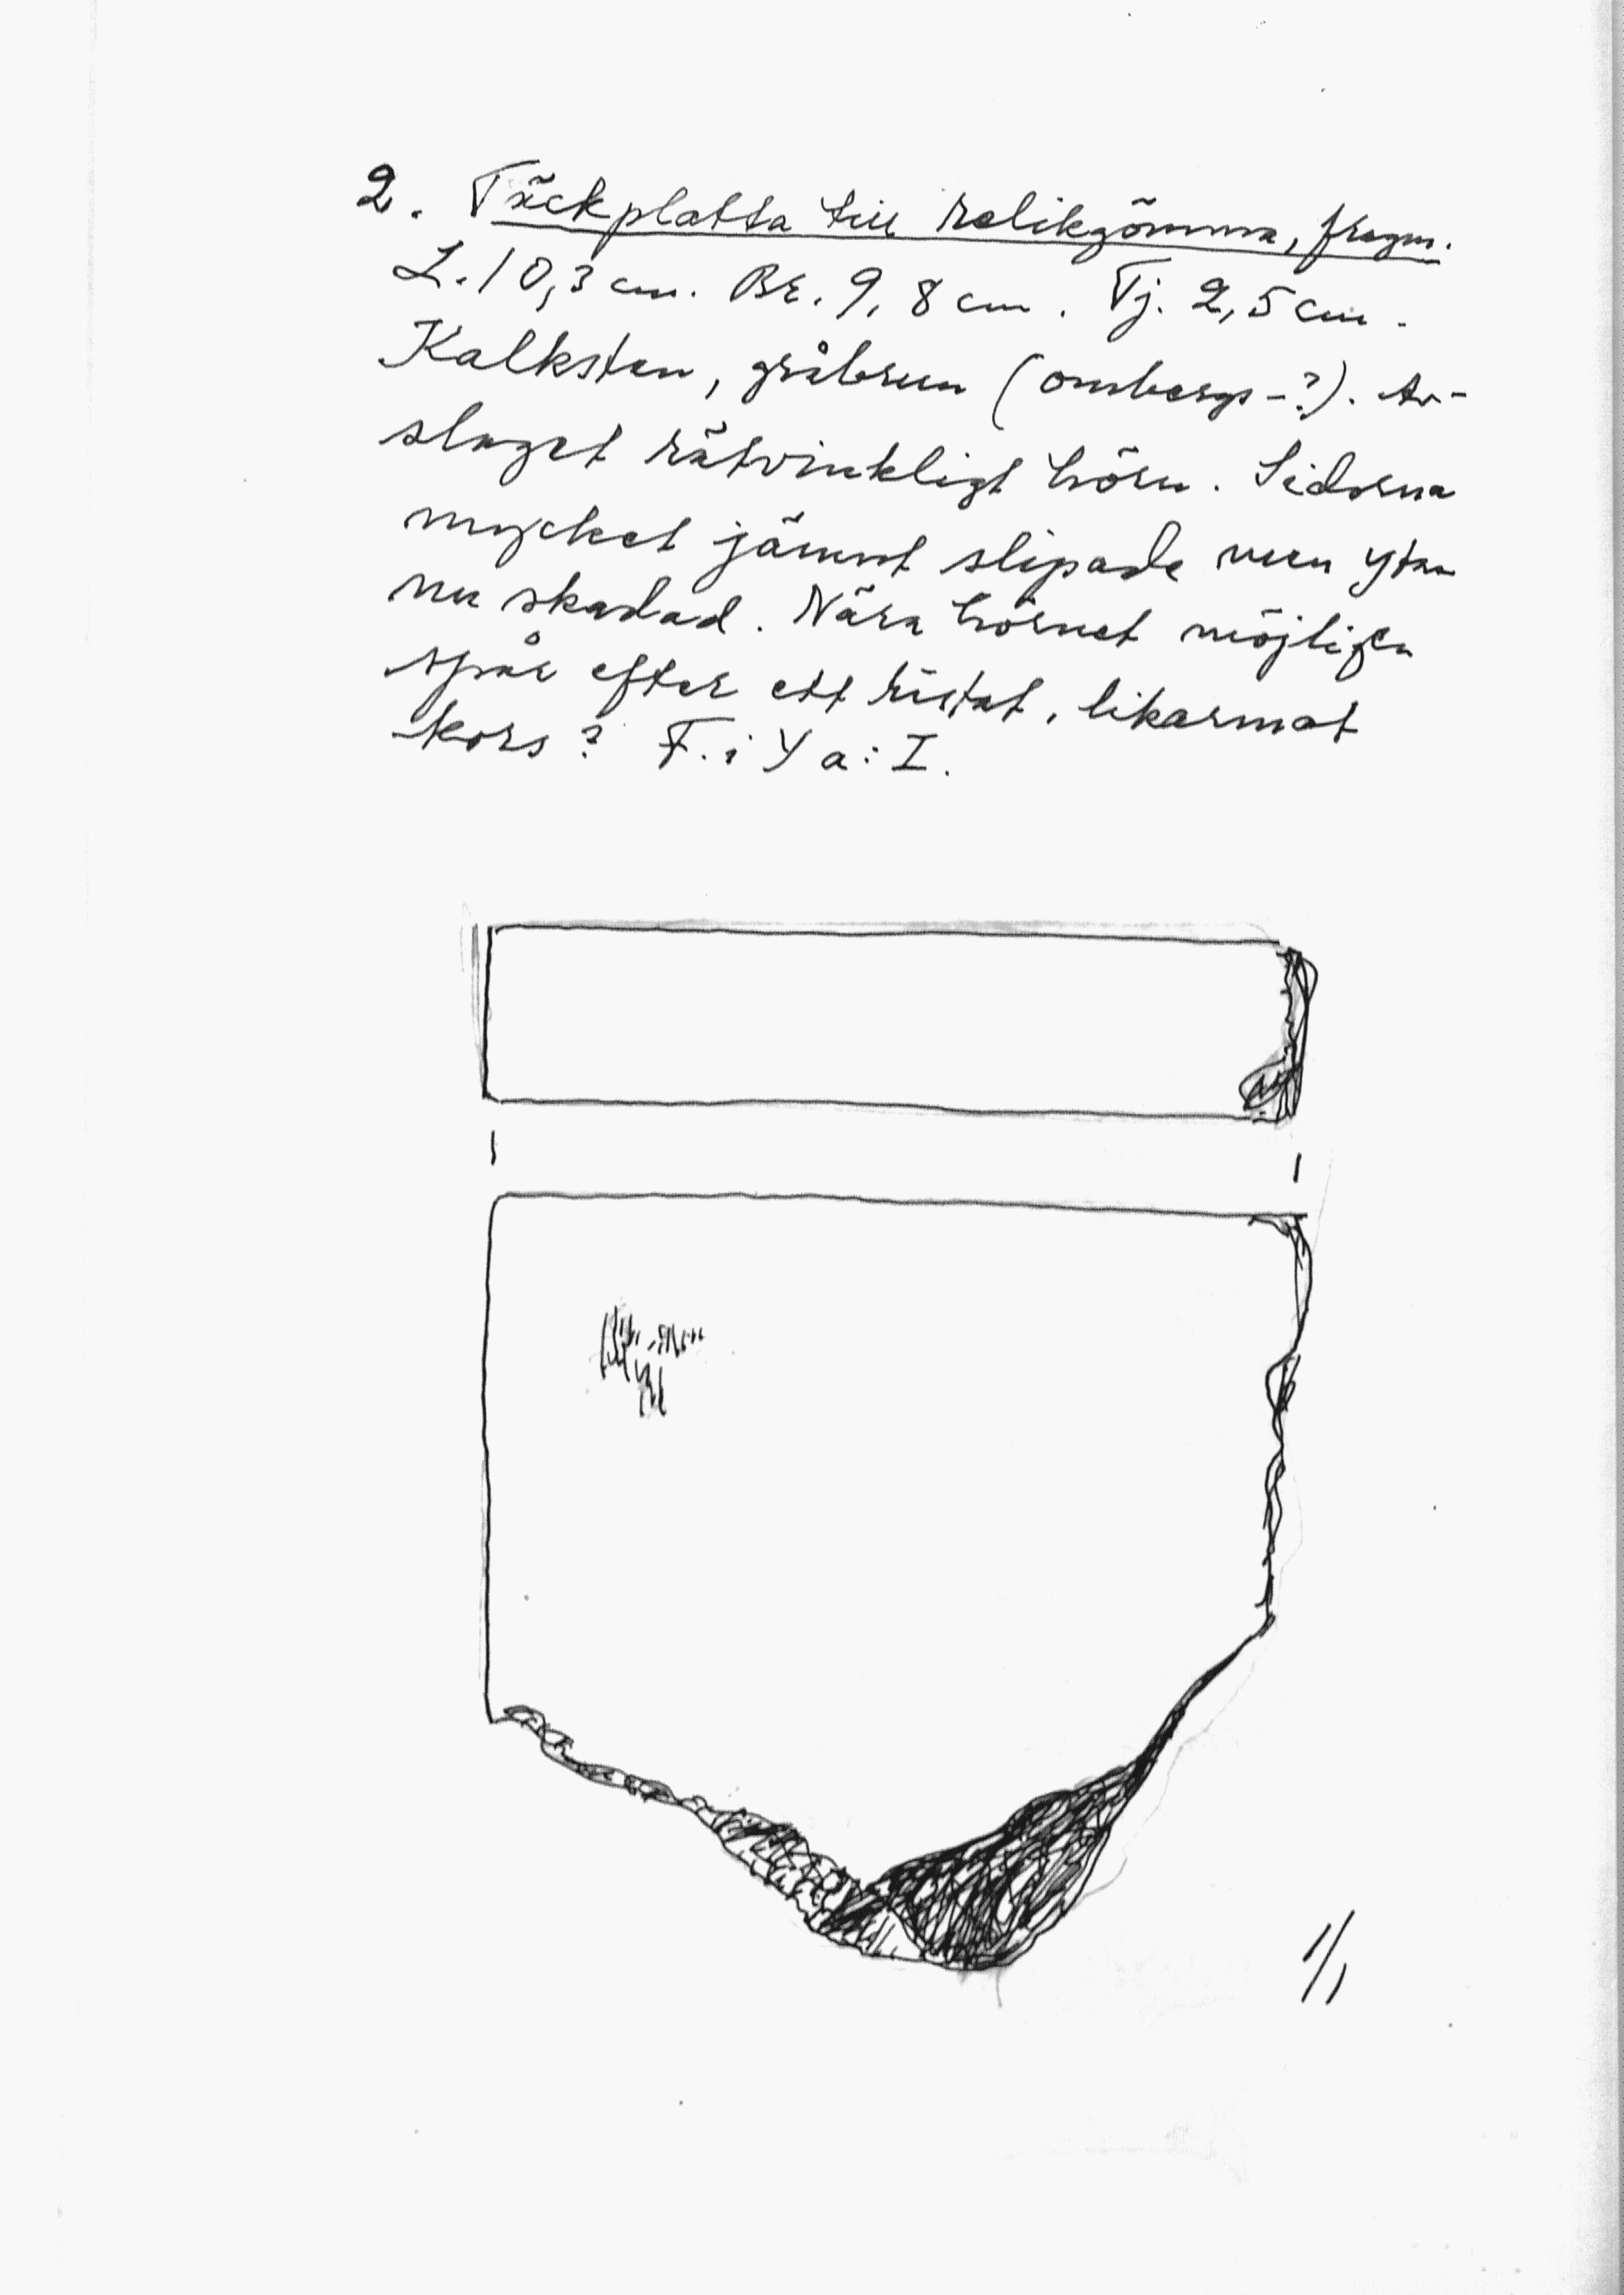 2. Täckplatta till relikgömma, fragm.
L. 10,3 cm. Br. 9,8 cm. Tj. 2,5 cm.
Kalksten, gråbrun (ombergs-?). Av-
slaget rätvinkligt hörn. Sidorna
mycket jämnt slipade men ytan
nu skadad. Nära hörnet möjligen
spår efter ett ristat, likarmat
kors? F. i Y a: I.
1/1